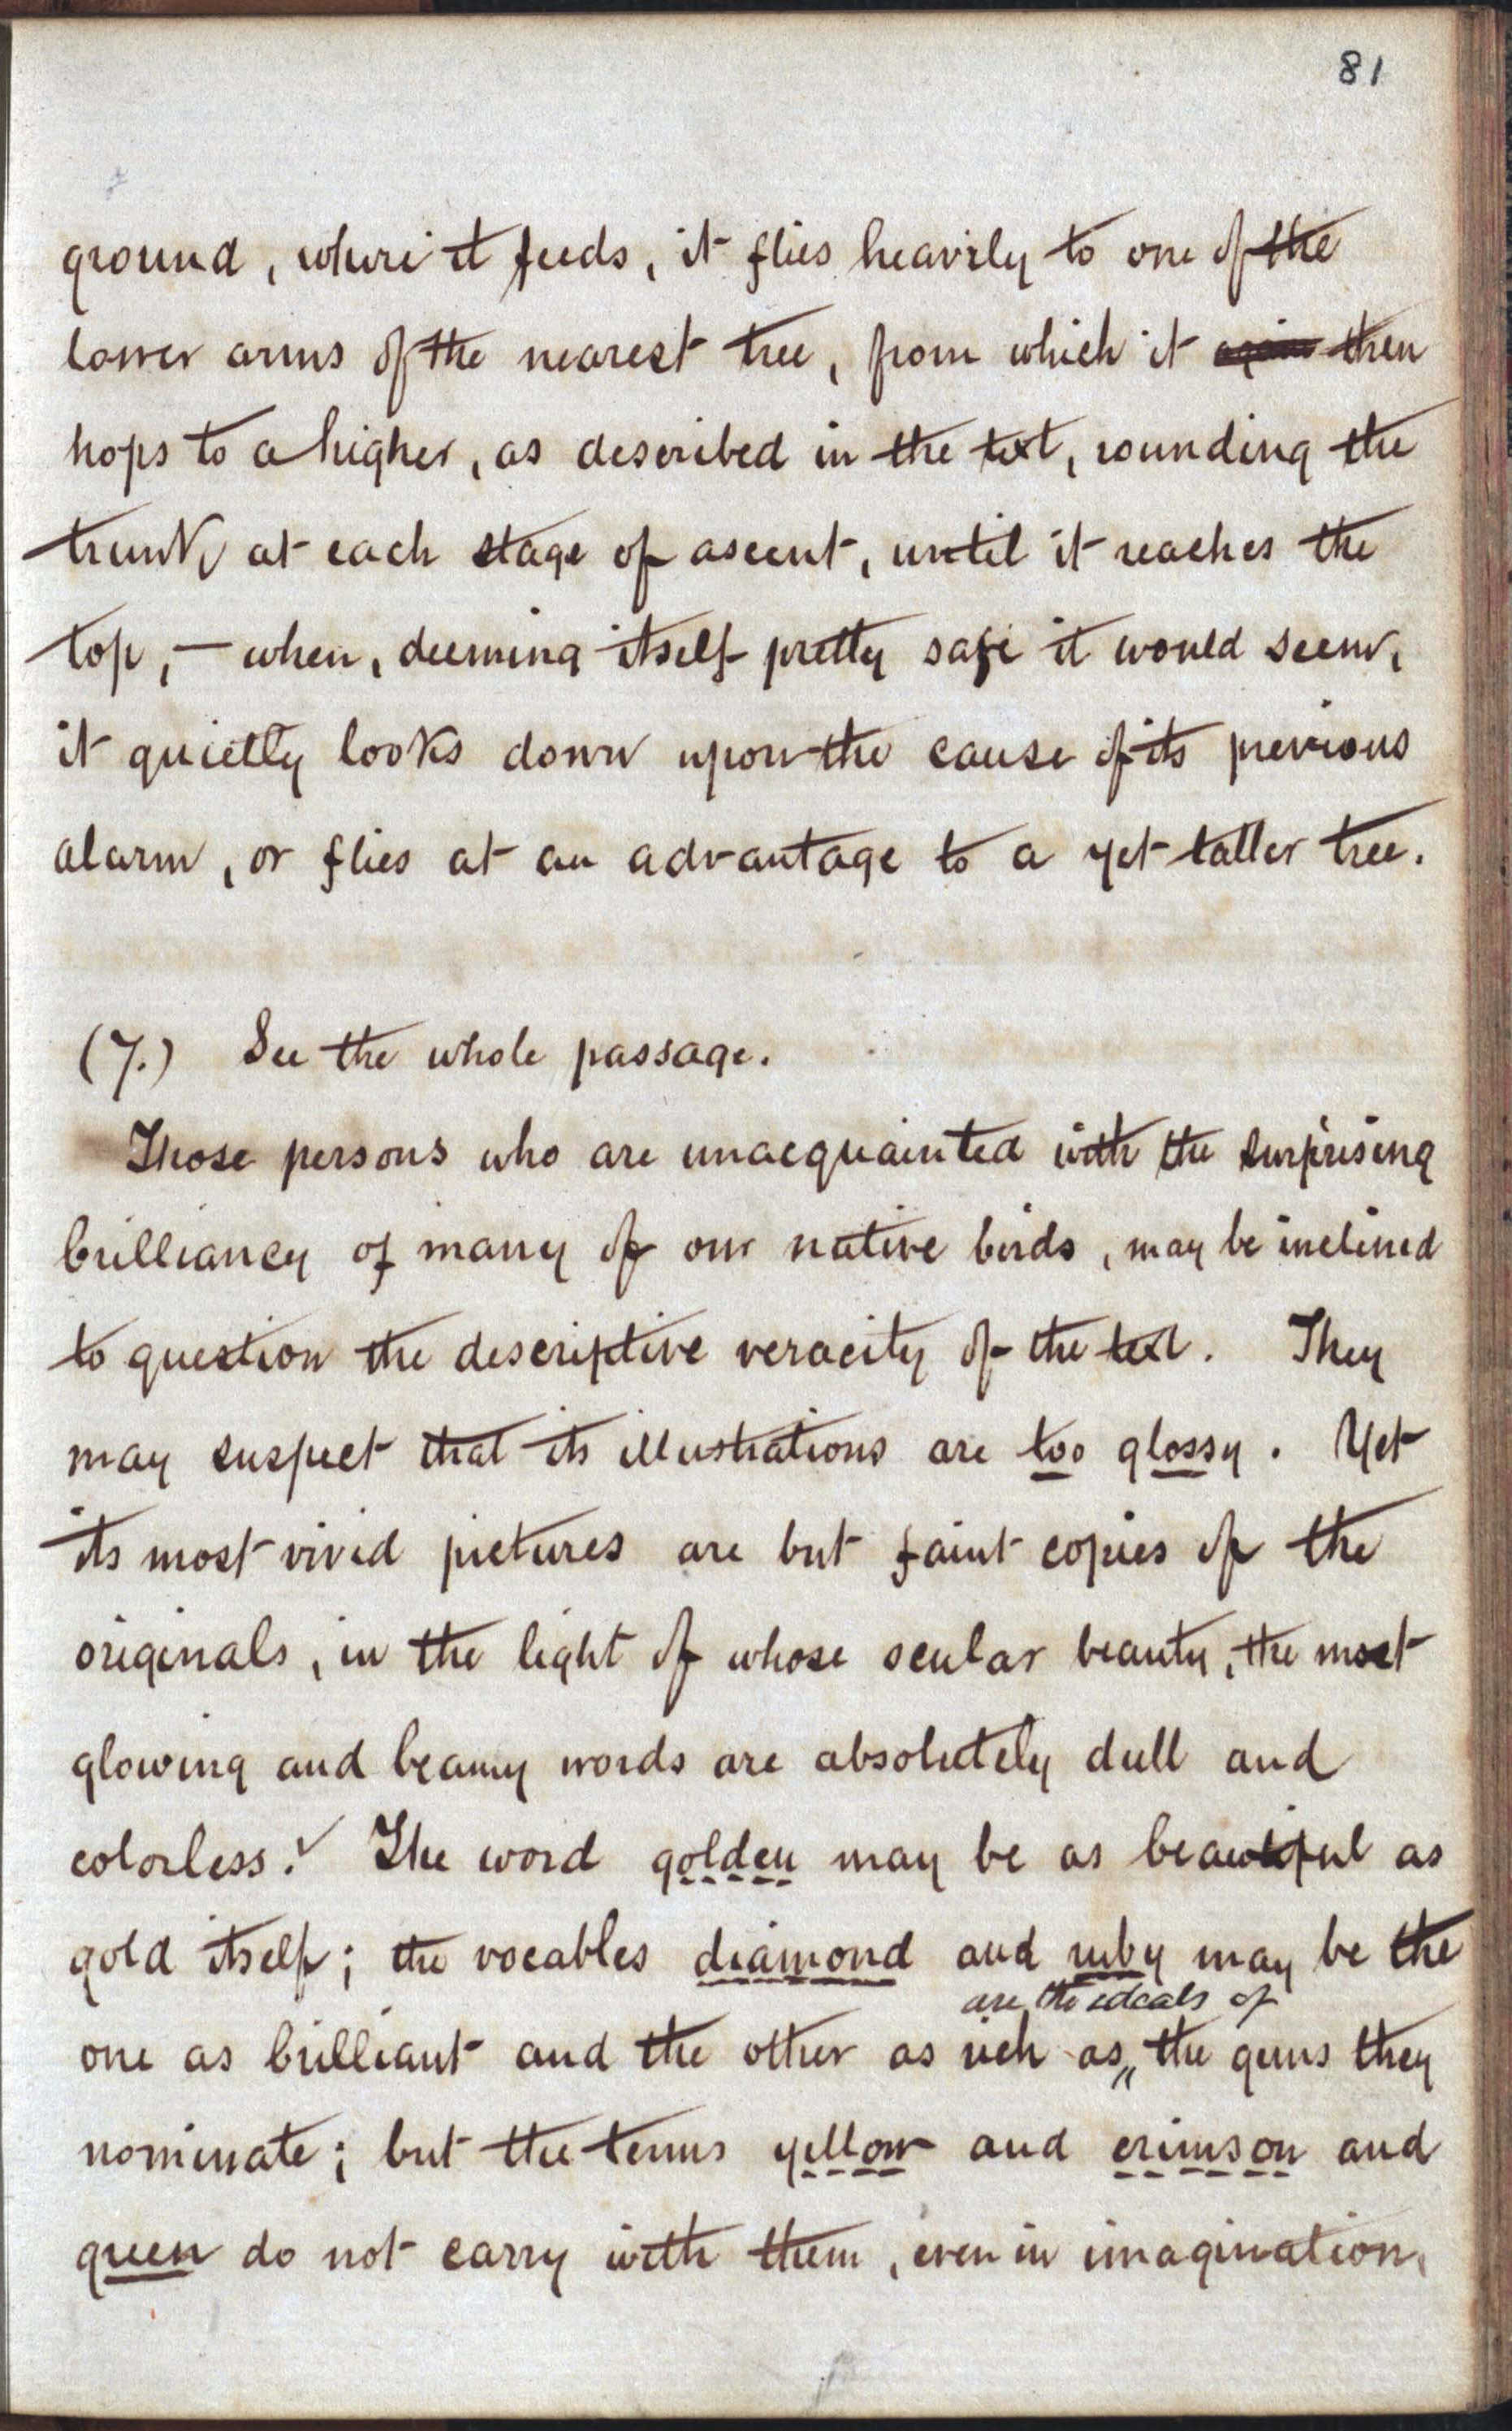 81
ground, where it feeds, it flies heavily to one of the
lower arms of the nearest tree, from which it again then
hops to a higher, as described in the text, rounding the
trunk at each stage of ascent, until it reaches the
top,— when, deeming itself pretty safe it would seem,
it quietly looks down upon the cause of its previous
alarm, or flies at an advantage to a yet taller tree.
(7.) See the whole passage.
Those persons who are unacquainted with the surprising
brilliancy of many of our native birds, may be inclined
to question the descriptive veracity of the text. They
may suspect that its illustrations are too glossy. Yet
its most vivid pictures are but faint copies of the
originals, in the light of whose scular beauty, the most
glowing and beamy words are absolutely dull and
colorless. The word golden may be as beautiful as
gold itself; the vocables diamond and ruby may be the
are the ideals of
one as brilliant and the other as rich as,, the gems they
nominate; but the terms yellow and crimson and
green do not carry with them, even in imagination,